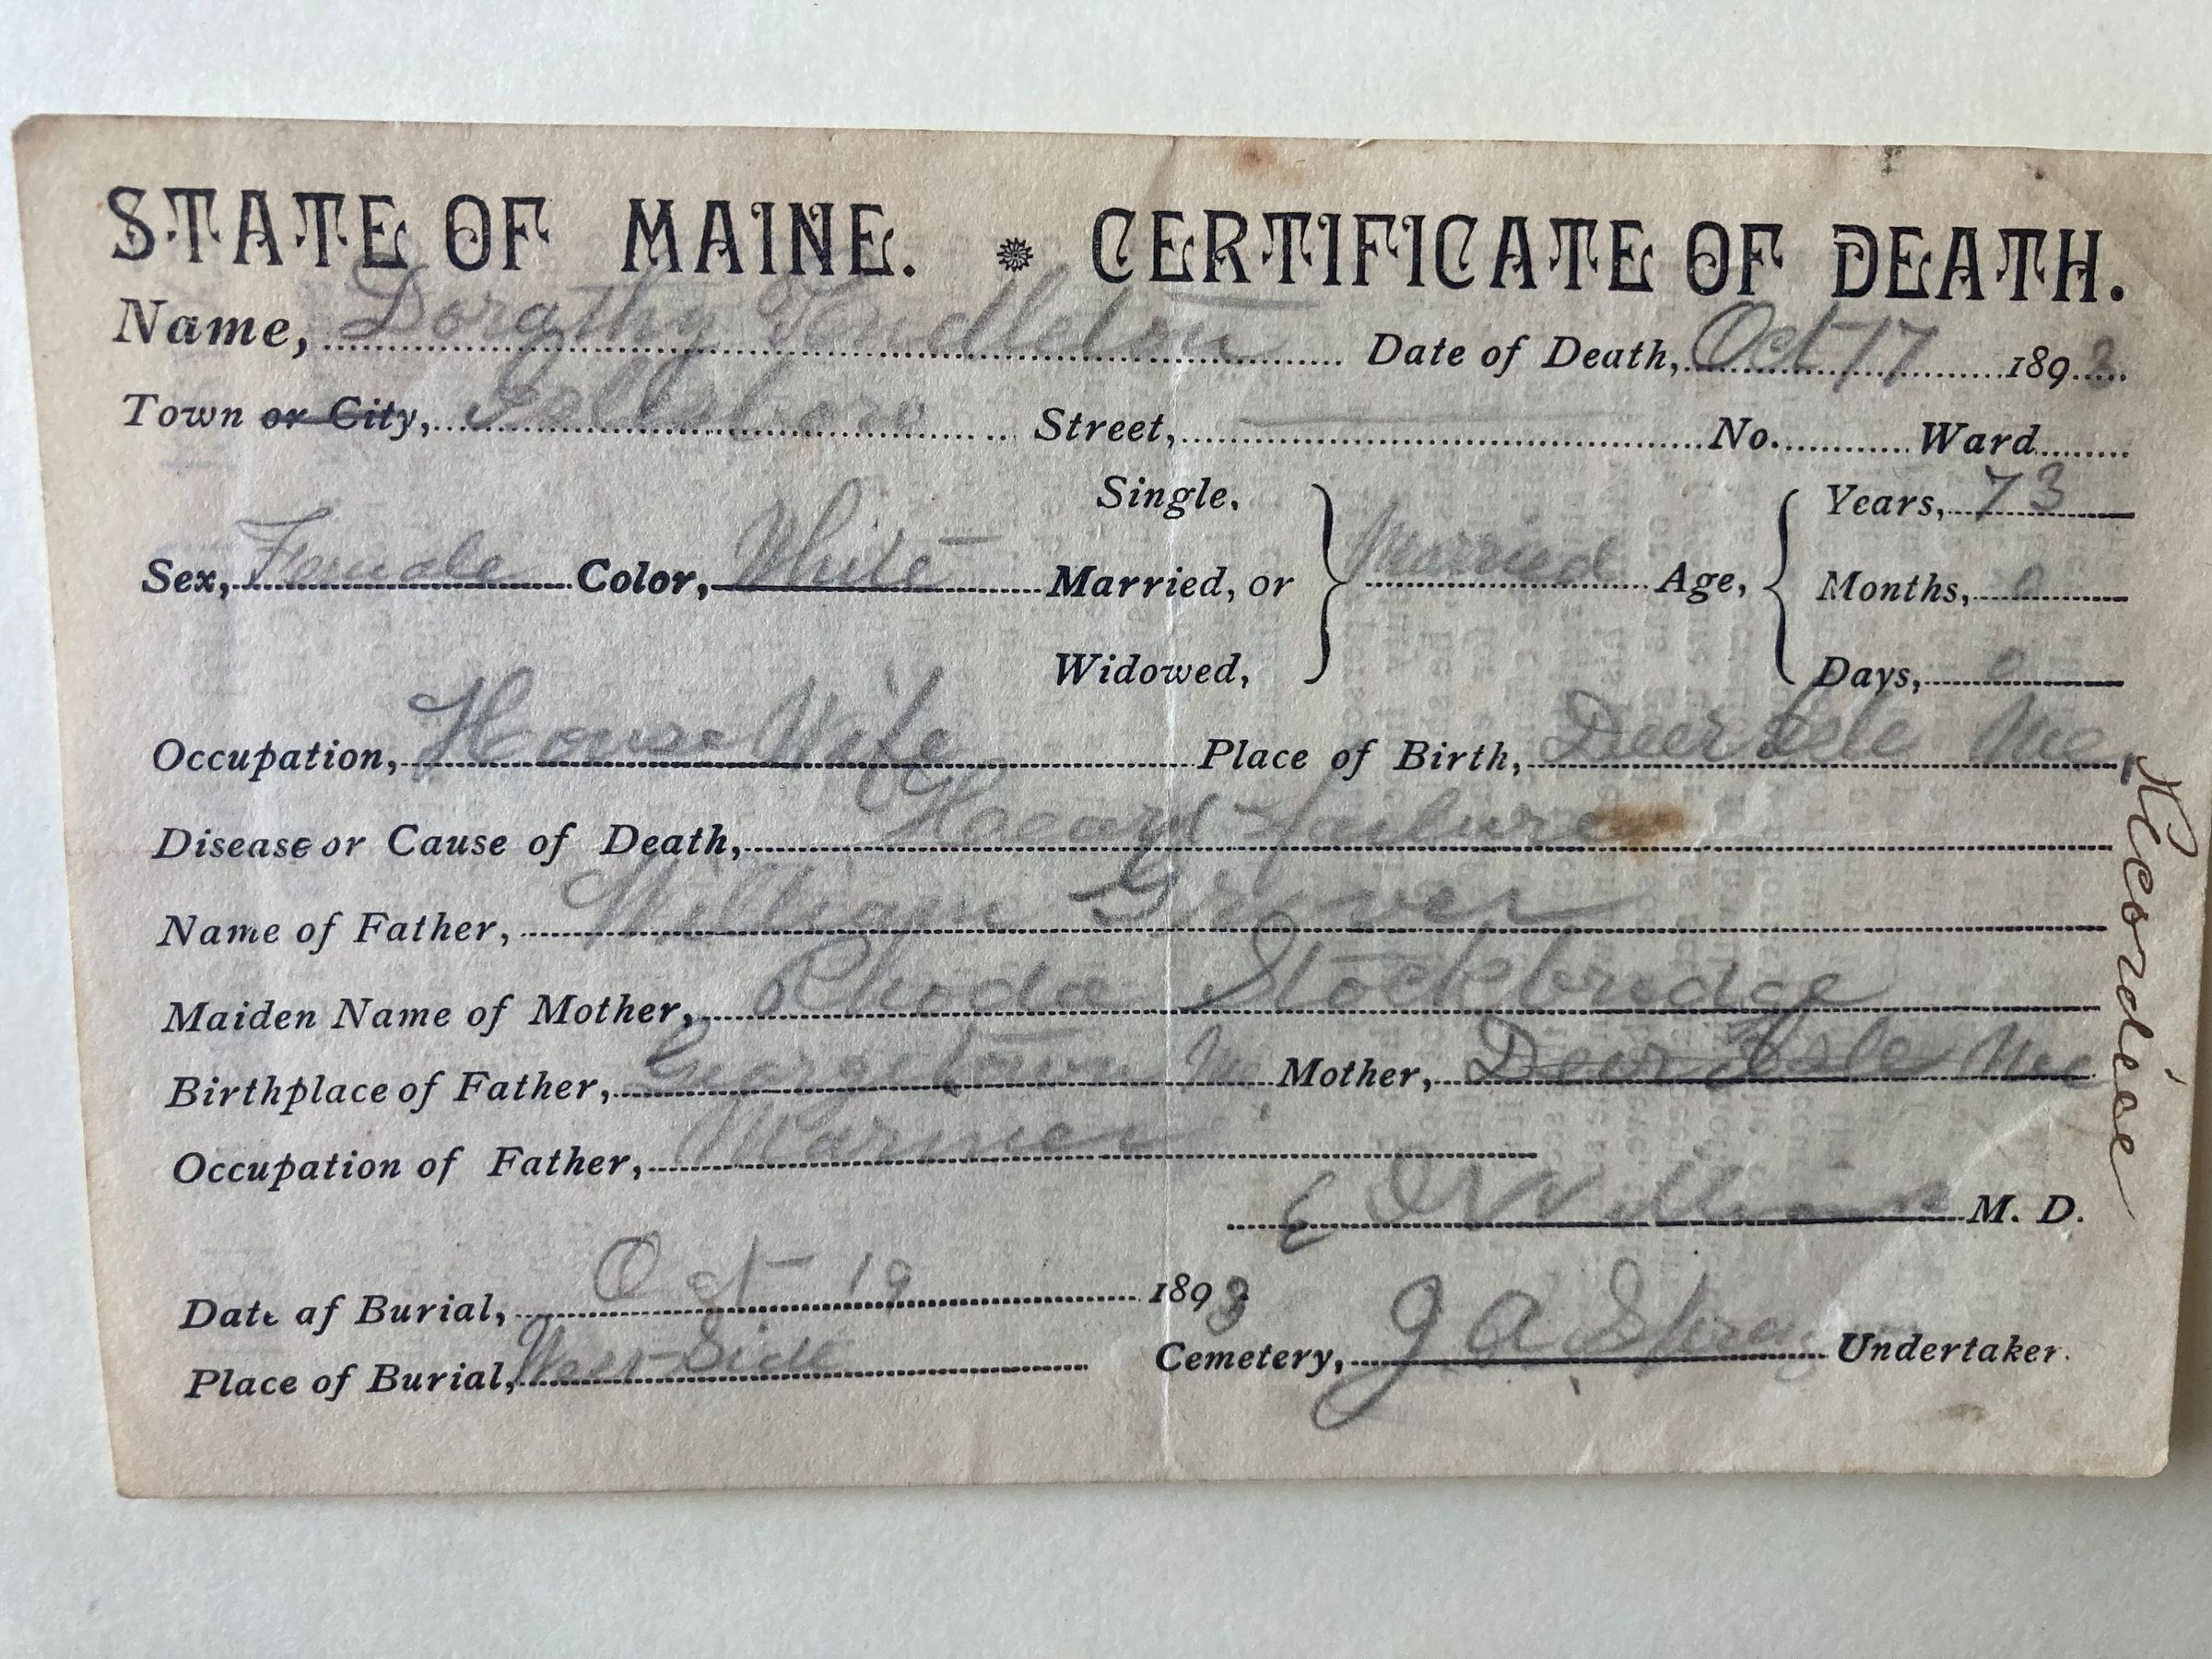 STATE OF MAINE. CERTIFICATE OF DEATH.
Name, Dorathy Pendleton Date of Death, Oct 17 1893
Town or City, Islesboro Street, No. Ward
Single,
Years, 73
Sex, Female Color, White Married, or Married Age, Months, 0
Widowed, Days, 0
Occupation, House Wife Place of Birth, Deer Isle Me,
Disease or Cause of Death, Heart failure
Name of Father, William Grover
Maiden Name of Mother, Rhoda Stockbridge
Birthplace of Father, Georgetown Me Mother, Deer Isle Me
Occupation of Father, Mariner
E D Williams M. D.
Date af Burial, Oct 19 1893
Place of Burial, West Side Cemetery, J A Sprague Undertaker.
Recorded